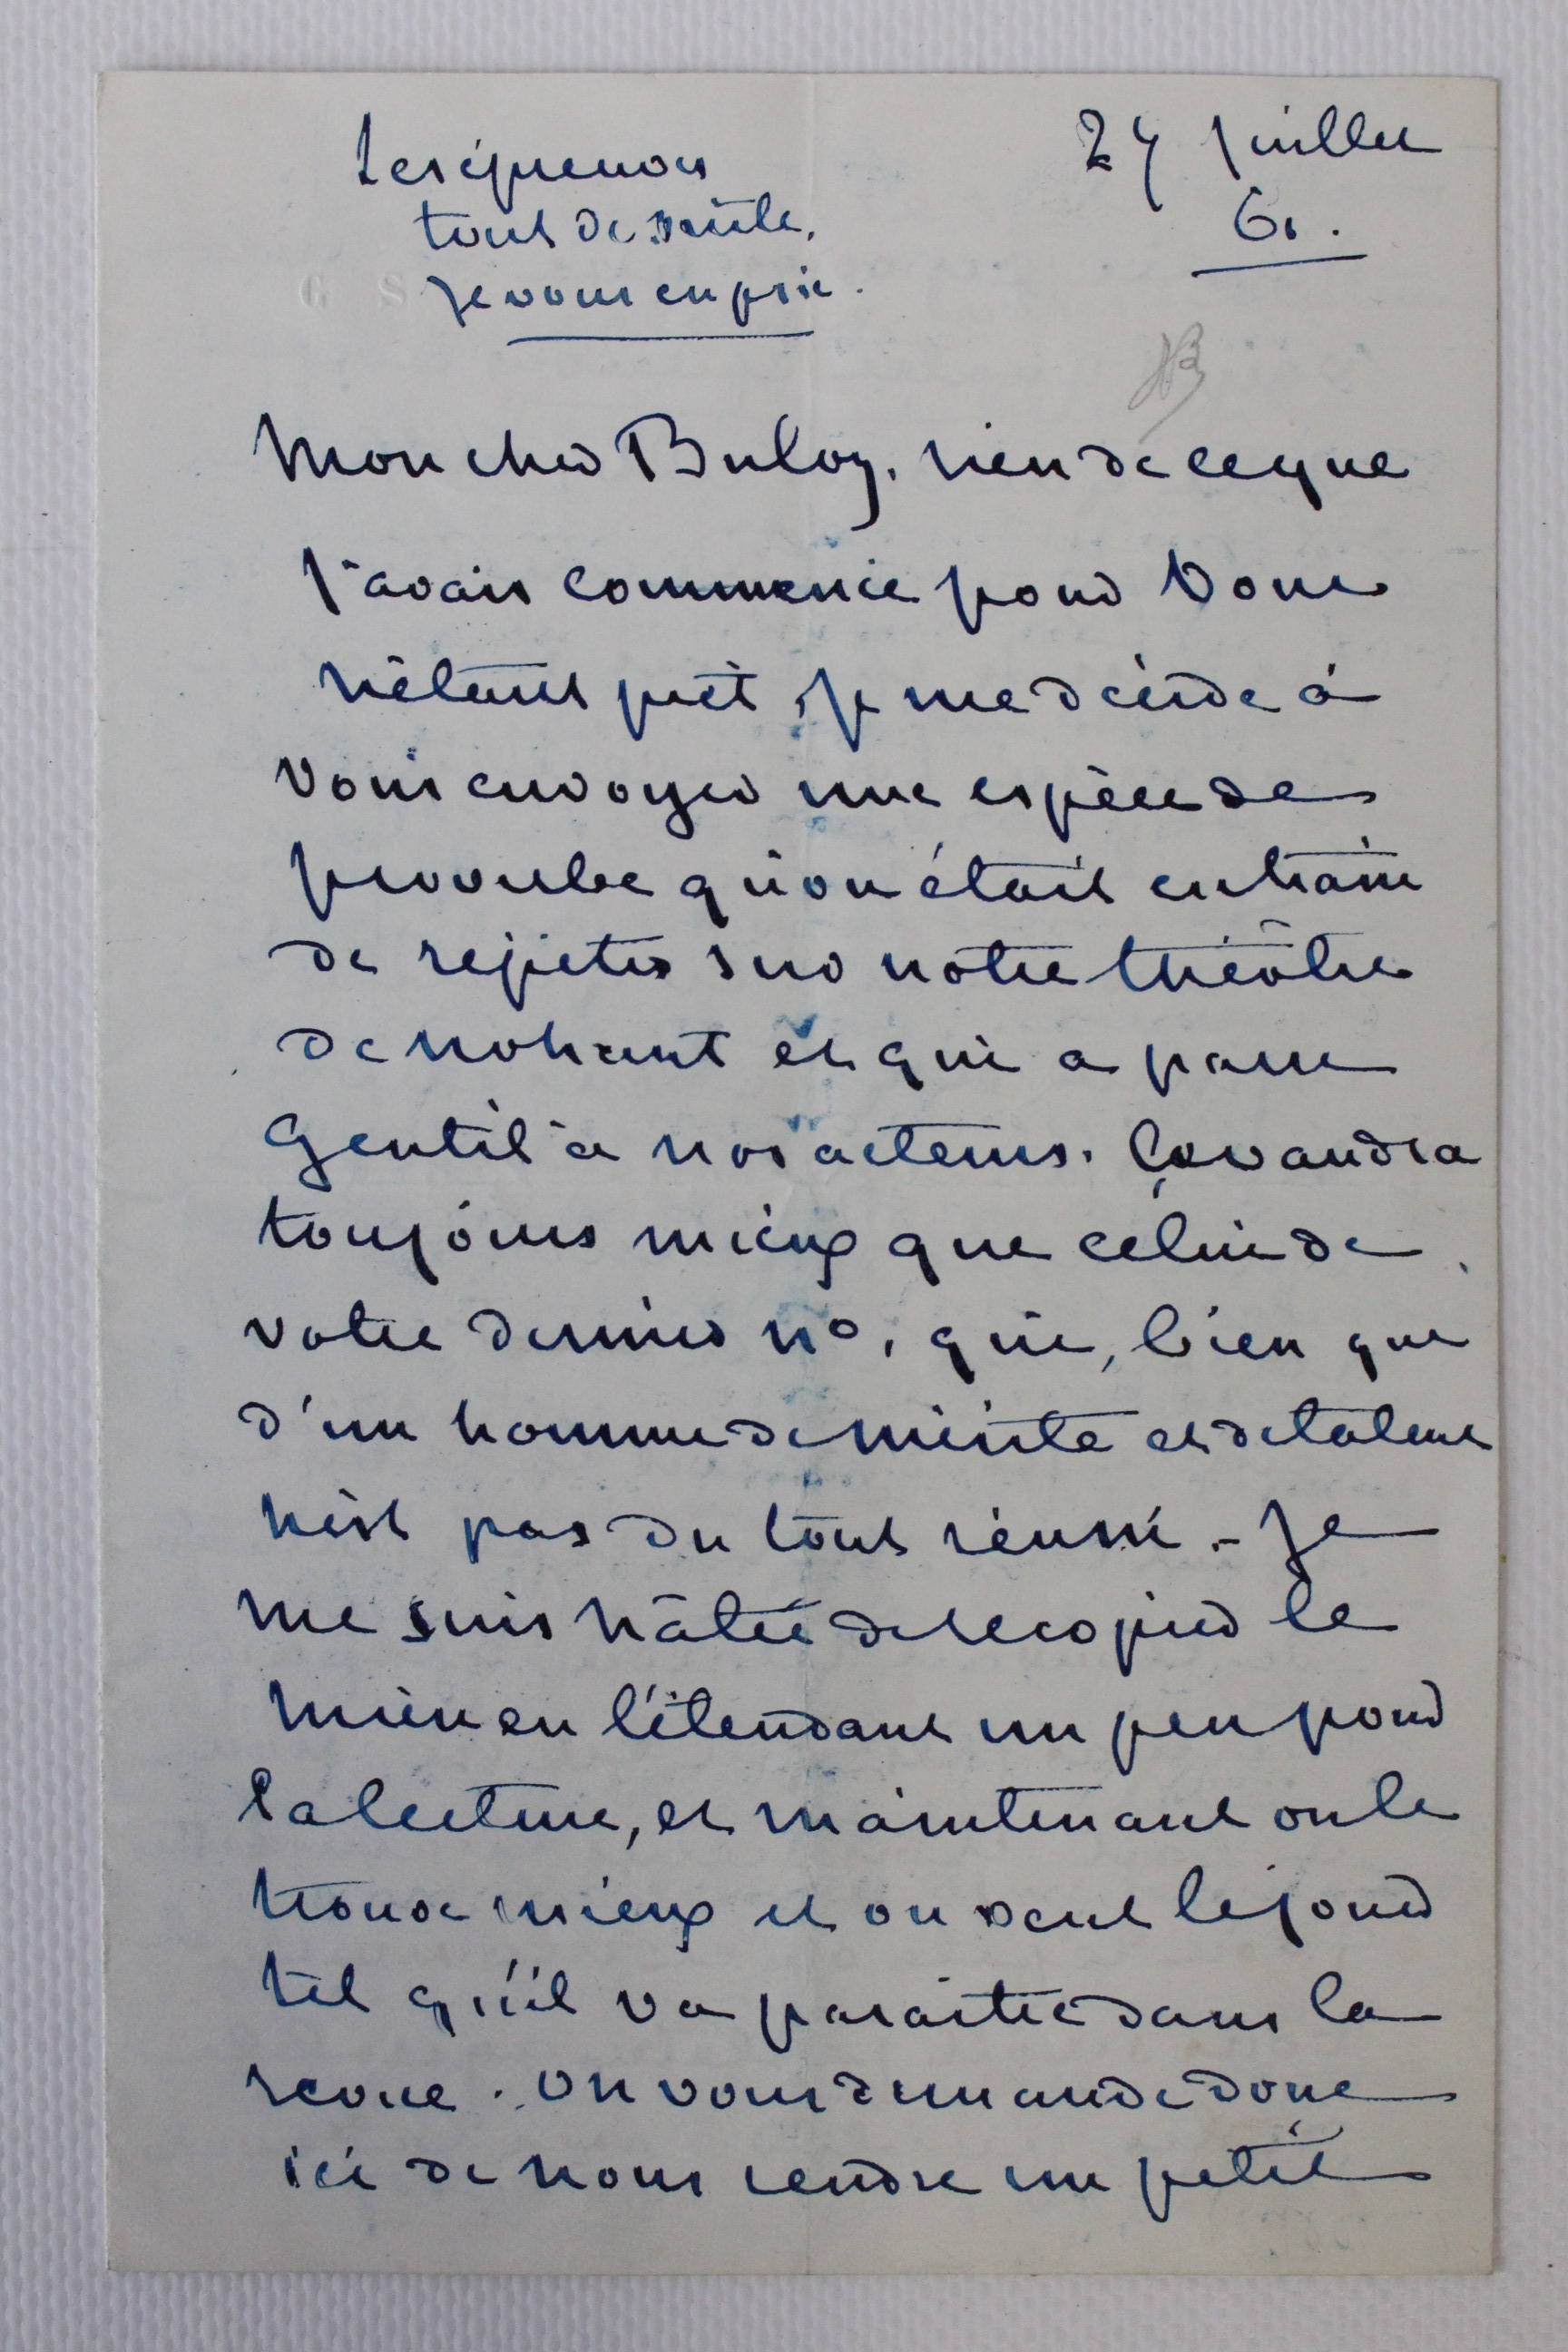 Les épreuves
tout de suite,
je vous en prie.
24 juillet
61.
Mon cher Buloz, rien de ce que
j'avais commencé pour vous
n'étant prêt, je me décide à
vous envoyer une espèce de
proverbe qu'on était en train
de répéter sur notre théâtre
de nohant et qui a paru
gentil à nos acteurs. Ça vaudra
toujours mieux que celui de
votre dernier n°, qui, bien que
d'un homme de mérite et de talent
n'est pas du tout réussi. - Je
me suis hâtée de recopier le
mien en l'étendant un peu pour
la lecture, et maintenant on le
trouve mieux et on veut le jouer
tel qu'il va paraître dans la
revue. On vous demande donc
ici de nous rendre un petit